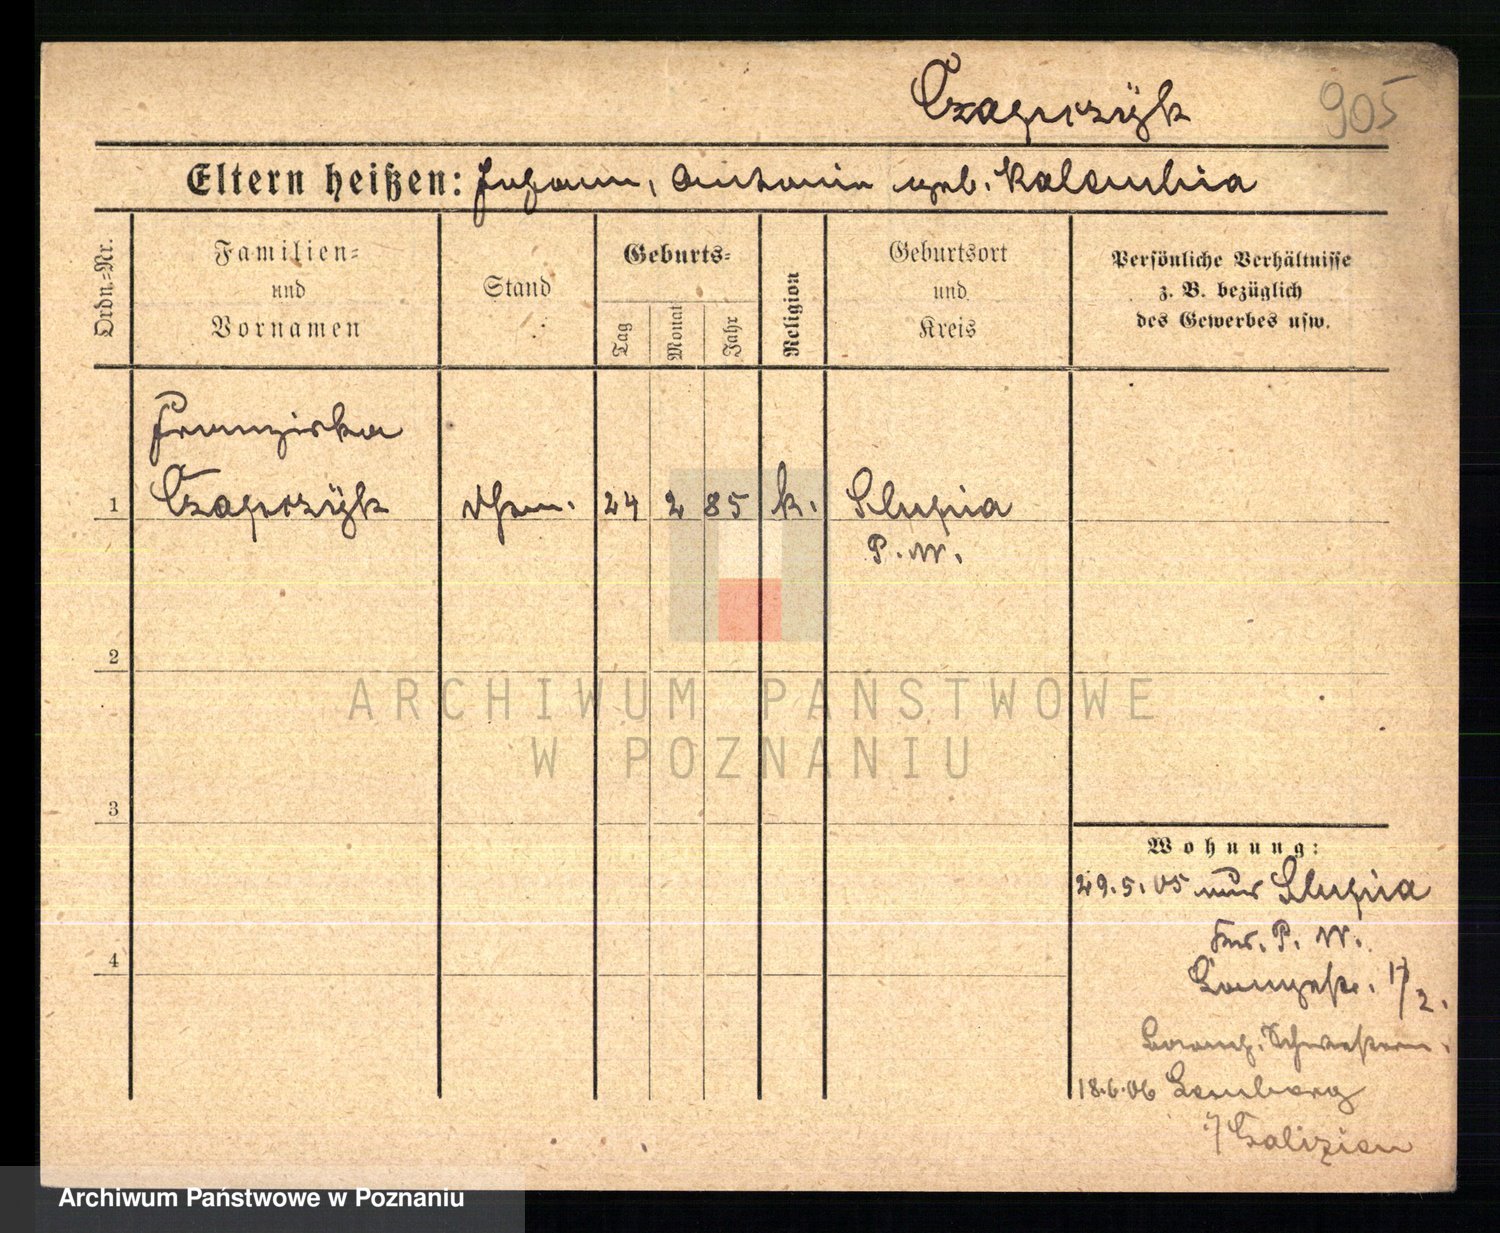 Czapczÿk
905
Eltern heißen: Johann, Antonia geb. Kalembia
Ordn.-Nr.
Familien-
und
Vornamen
Stand
Geburts-
Tag
Monat
Jahr
Religion
Geburtsort
und
Kreis
Persönliche Verhältnisse
z. B. bezüglich
des Gewerbes usw.
Franziska
1 Czapczÿk 24 2 85 k. Slupia
P. W.
2
ARCHIWUM PAŃSTWOWE
W POZNANIU
3
Wohnung:
29.5.05 aus Slupia
Krs. P. W.
Langestr. 17/2.
Barmh. Schwestern.
4
18.6.06 Lemberg
i/ Galizien
Archiwum Państwowe w Poznaniu